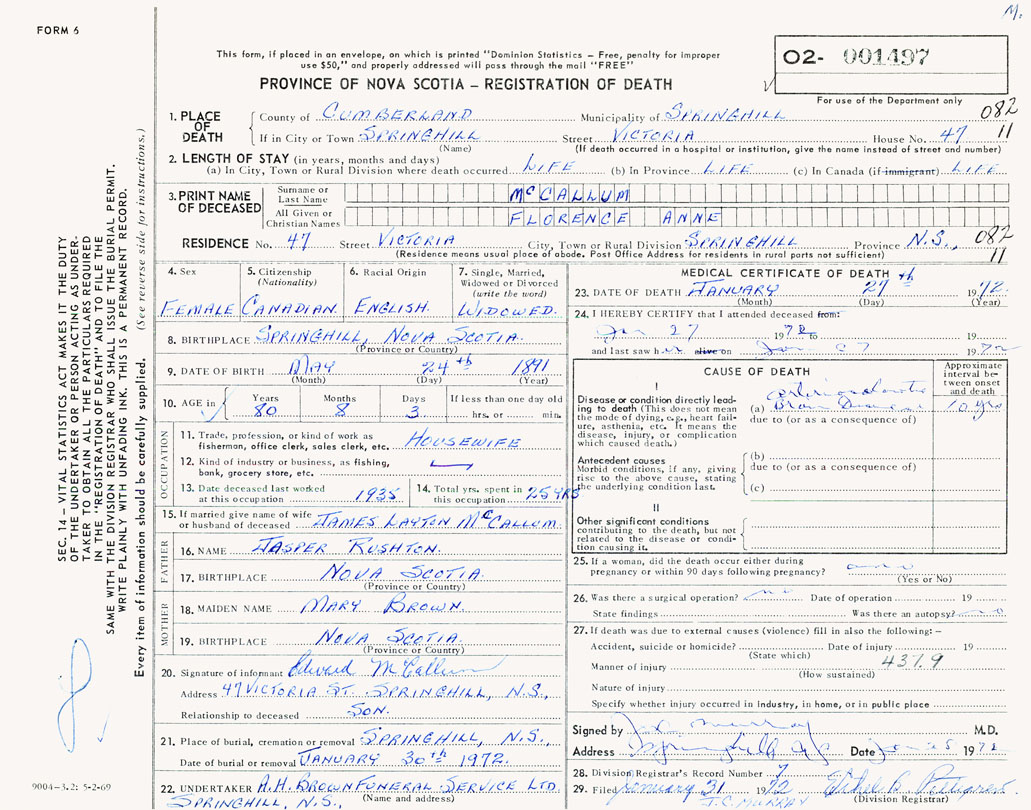 M.
FORM 6
This form, if placed in an envelope, on which is printed "Dominion Statistics – Free, penalty for improper
use $50," and properly addressed will pass through the mail "FREE"
PROVINCE OF NOVA SCOTIA – REGISTRATION OF DEATH
O2- 001497
For use of the Department only
SEC. 14 – VITAL STATISTICS ACT MAKES IT THE DUTY
OF THE UNDERTAKER OR PERSON ACTING AS UNDER-
TAKER TO OBTAIN ALL THE PARTICULARS REQUIRED
IN THE "REGISTRATION OF DEATH" AND TO FILE THE
SAME WITH THE DIVISION REGISTRAR WHO SHALL ISSUE THE BURIAL PERMIT.
WRITE PLAINLY WITH UNFADING INK. THIS IS A PERMANENT RECORD.
Every item of information should be carefully supplied. (See reverse side for instructions.)
9004–3.2: 5-2-69
1. PLACE OF DEATH
County of CUMBERLAND Municipality of SPRINGHILL 082
If in City or Town SPRINGHILL Street VICTORIA House No. 47 11
(Name) (If death occurred in a hospital or institution, give the name instead of street and number)
2. LENGTH OF STAY (in years, months and days)
(a) In City, Town or Rural Division where death occurred LIFE (b) In Province LIFE (c) In Canada (if immigrant) LIFE
3. PRINT NAME OF DECEASED
Surname or Last Name McCALLUM
All Given or Christian Names FLORENCE ANNE
RESIDENCE No. 47 Street VICTORIA City, Town or Rural Division SPRINGHILL Province N.S., 082
(Residence means usual place of abode. Post Office Address for residents in rural parts not sufficient) 11
4. Sex
FEMALE
5. Citizenship
(Nationality)
CANADIAN
6. Racial Origin
ENGLISH
7. Single, Married,
Widowed or Divorced
(write the word)
WIDOWED.
8. BIRTHPLACE SPRINGHILL, NOVA SCOTIA.
(Province or Country)
9. DATE OF BIRTH MAY 24th 1891
(Month) (Day) (Year)
10. AGE in
Years Months Days If less than one day old
80 8 3 hrs. or min.
OCCUPATION
11. Trade, profession, or kind of work as
fisherman, office clerk, sales clerk, etc. HOUSEWIFE
12. Kind of industry or business, as fishing,
bank, grocery store, etc.
13. Date deceased last worked
at this occupation 1935
14. Total yrs. spent in
this occupation 25 YRS
15. If married give name of wife
or husband of deceased JAMES LAYTON McCALLUM.
FATHER
16. NAME JASPER RUSHTON.
17. BIRTHPLACE NOVA SCOTIA.
(Province or Country)
MOTHER
18. MAIDEN NAME MARY BROWN.
19. BIRTHPLACE NOVA SCOTIA.
(Province or Country)
20. Signature of informant Edward McCallum
Address 47 VICTORIA ST. SPRINGHILL, N.S.,
Relationship to deceased SON.
21. Place of burial, cremation or removal SPRINGHILL, N.S.,
Date of burial or removal JANUARY 30th 1972.
22. UNDERTAKER A.H. BROWN FUNERAL SERVICE LTD.
SPRINGHILL, N.S., (Name and address)
MEDICAL CERTIFICATE OF DEATH
23. DATE OF DEATH JANUARY 27th 1972.
(Month) (Day) (Year)
24. I HEREBY CERTIFY that I attended deceased from:
Jan 27 1972
and last saw her alive on Jan 27 1972
CAUSE OF DEATH
Approximate
interval be-
tween onset
and death
I
Disease or condition directly lead-
ing to death (This does not mean
the mode of dying, e.g., heart fail-
ure, asthenia, etc. It means the
disease, injury, or complication
which caused death.)
arteriosclerotic
(a) Brain Disease 10 yrs
due to (or as a consequence of)
Antecedent causes
Morbid conditions, if any, giving
rise to the above cause, stating
the underlying condition last.
(b)
due to (or as a consequence of)
(c)
II
Other significant conditions
contributing to the death, but not
related to the disease or condi-
tion causing it.
25. If a woman, did the death occur either during
pregnancy or within 90 days following pregnancy?
(Yes or No)
26. Was there a surgical operation? no Date of operation 19
State findings Was there an autopsy? no
27. If death was due to external causes (violence) fill in also the following: –
Accident, suicide or homicide? Date of injury 19
(State which)
Manner of injury 437.9
(How sustained)
Nature of injury
Specify whether injury occurred in industry, in home, or in public place
Signed by Murray M.D.
Address Springhill NS Date Jan 1972
28. Division Registrar's Record Number 7
29. Filed January 31 1972 Ethel B. Pettigrew
J.C. MURRAY (Division Registrar)